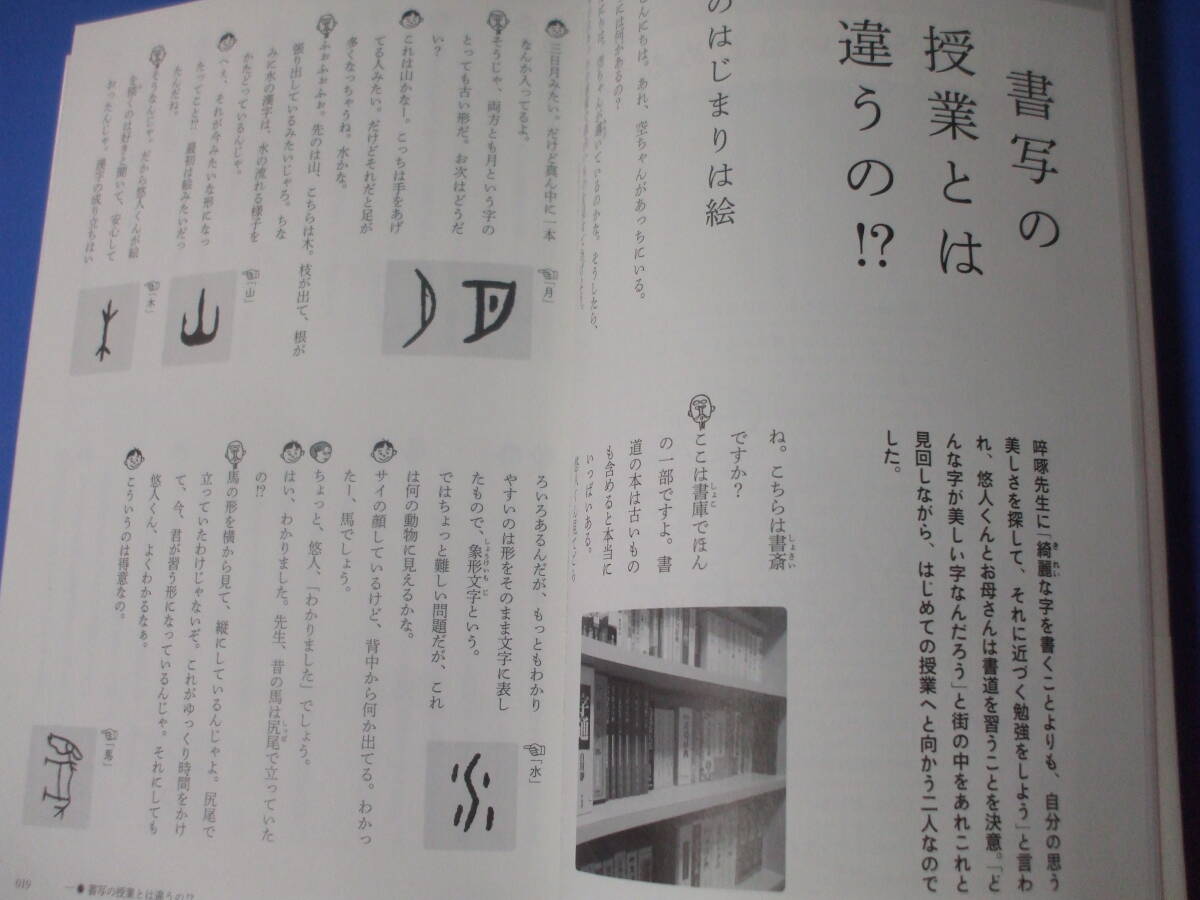 書写の
授業とは
違うの!?
啐啄先生に「綺麗な字を書くことよりも、自分の思う
美しさを探して、それに近づく勉強をしよう」と言わ
れ、悠人くんとお母さんは書道を習うことを決意。「ど
んな字が美しい字なんだろう」と街の中をあれこれと
見回しながら、はじめての授業へと向かう二人なので
した。
のはじまりは絵
んにちは。あれ、空ちゃんがあっちにいる。
には何があるの?
ね。こちらは書斎
ですか?
ここは書庫でほん
の一部ですよ。書
道の本は古いもの
も含めると本当に
いっぱいある。
三日月みたい。だけど真ん中に一本
なんか入ってるよ。
そうじゃ、両方とも月という字の
とっても古い形だ。お次はどうだ
い?
これは山かなー。こっちは手をあげ
てる人みたい。だけどそれだと足が
多くなっちゃうね。水かな。
ふぉふぉふぉ。先のは山、こちらは木。枝が出て、根が
張り出しているみたいじゃろ。ちな
みに水の漢字は、水の流れる様子を
かたどっているんじゃ。
へぇ、それが今みたいな形になっ
たってこと!! 最初は絵みたいだっ
たんだね。
そうなんじゃ。だから悠人くんが絵
を描くのは好きと聞いて、安心して
おったんじゃ。漢字の成り立ちはい
「月」
「山」
「木」
ろいろあるんだが、もっともわかり
やすいのは形をそのまま文字に表し
たもので、象形文字という。
ではちょっと難しい問題だが、これ
は何の動物に見えるかな。
サイの顔しているけど、背中から何か出てる。わかっ
たー、馬でしょう。
ちょっと、悠人、「わかりました」でしょう。
はい、わかりました。先生、昔の馬は尻尾で立っていた
の!?
馬の形を横から見て、縦にしているんじゃよ。尻尾で
立っていたわけじゃないぞ。これがゆっくり時間をかけ
て、今、君が習う形になっているんじゃ。それにしても
悠人くん、よくわかるなぁ。
こういうのは得意なの。
「水」
「馬」
019
一●書写の授業とは違うの!?